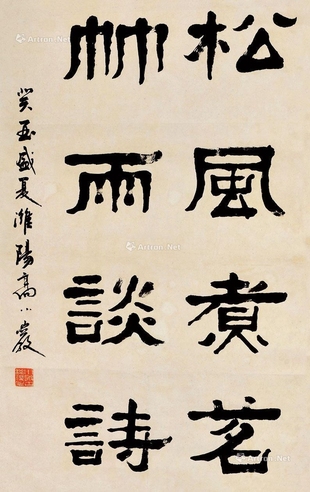 松風煮茗
竹雨談詩
癸亥盛夏濰陽高小巖
Artron.Net
Artron.Net
Artron.Net